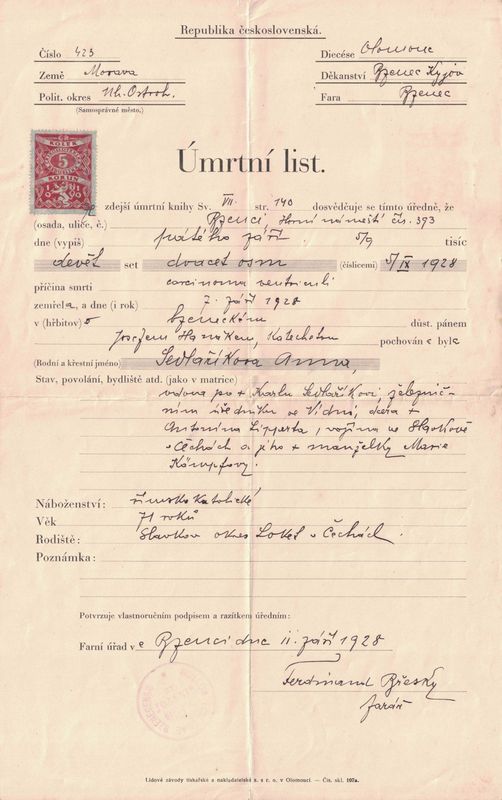 Republika československá.
Číslo 423
Diecése Olomouc
Země Morava
Děkanství Bzenec Kyjov
Polit. okres Uh. Ostroh.
Fara Bzenec
(Samosprávné město.)
ČR
KOLEK
5
KORUN
Úmrtní list.
Z zdejší úmrtní knihy Sv. VII. str. 140 dosvědčuje se tímto úředně, že
(osada, ulice, č.) Bzenci Horní náměstí čís. 393
dne (vypiš) pátého září 5/9 tisíc
devět set dvacet osm (číslicemi) 5/IX 1928
příčina smrti carcinoma ventriculi
zemřela, a dne (i rok) 7. září 1928
v (hřbitov) bzeneckém důst. pánem
Josefem Hanákem, Katechetou pochován byl
(Rodní a křestní jméno) Sedlaříková Anna,
Stav, povolání, bydliště atd. (jako v matrice)
vdova po + Karlu Sedlaříkovi, železnič-
ním úředníku ve Vídni, dcera +
Antonína Lipperta, vojína ve Slavkově
v Čechách a jeho + manželky Marie
Kämpfovy.
Náboženství: římsko katolické
Věk 71 roků
Rodiště: Slavkov okres Loket v Čechách.
Poznámka:
Potvrzuje vlastnoručním podpisem a razítkem úředním:
Farní úřad v Bzenci dne 11. září 1928
Ferdinand Břeský
farář
Lidové závody tiskařské a nakladatelské s. s r. o. v Olomouci. — Čís. skl. 107a.